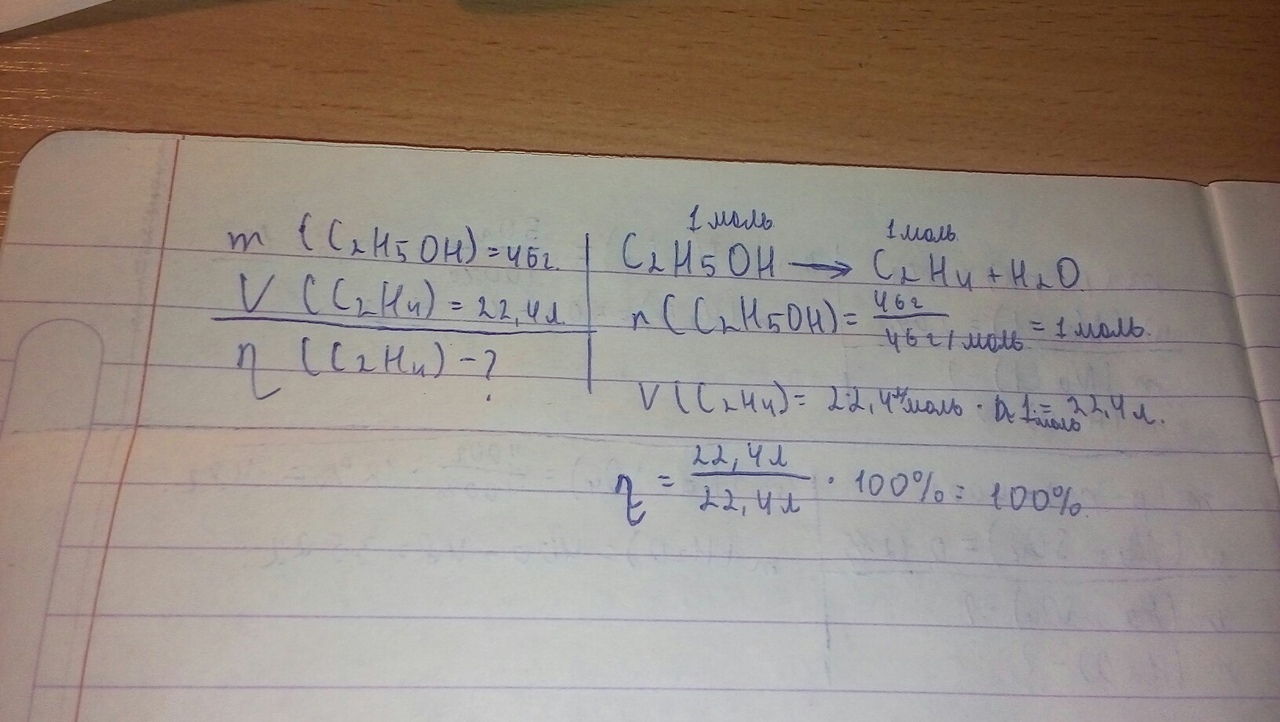 m (C₂H₅OH) = 46г.
V (C₂H₄) = 22,4л
η (C₂H₄) - ?
1 моль 1 моль
C₂H₅OH → C₂H₄ + H₂O
n (C₂H₅OH) = 46г / 46г/моль = 1 моль.
V (C₂H₄) = 22,4 л/моль · 1 моль = 22,4 л.
η = 22,4л / 22,4л · 100% = 100%